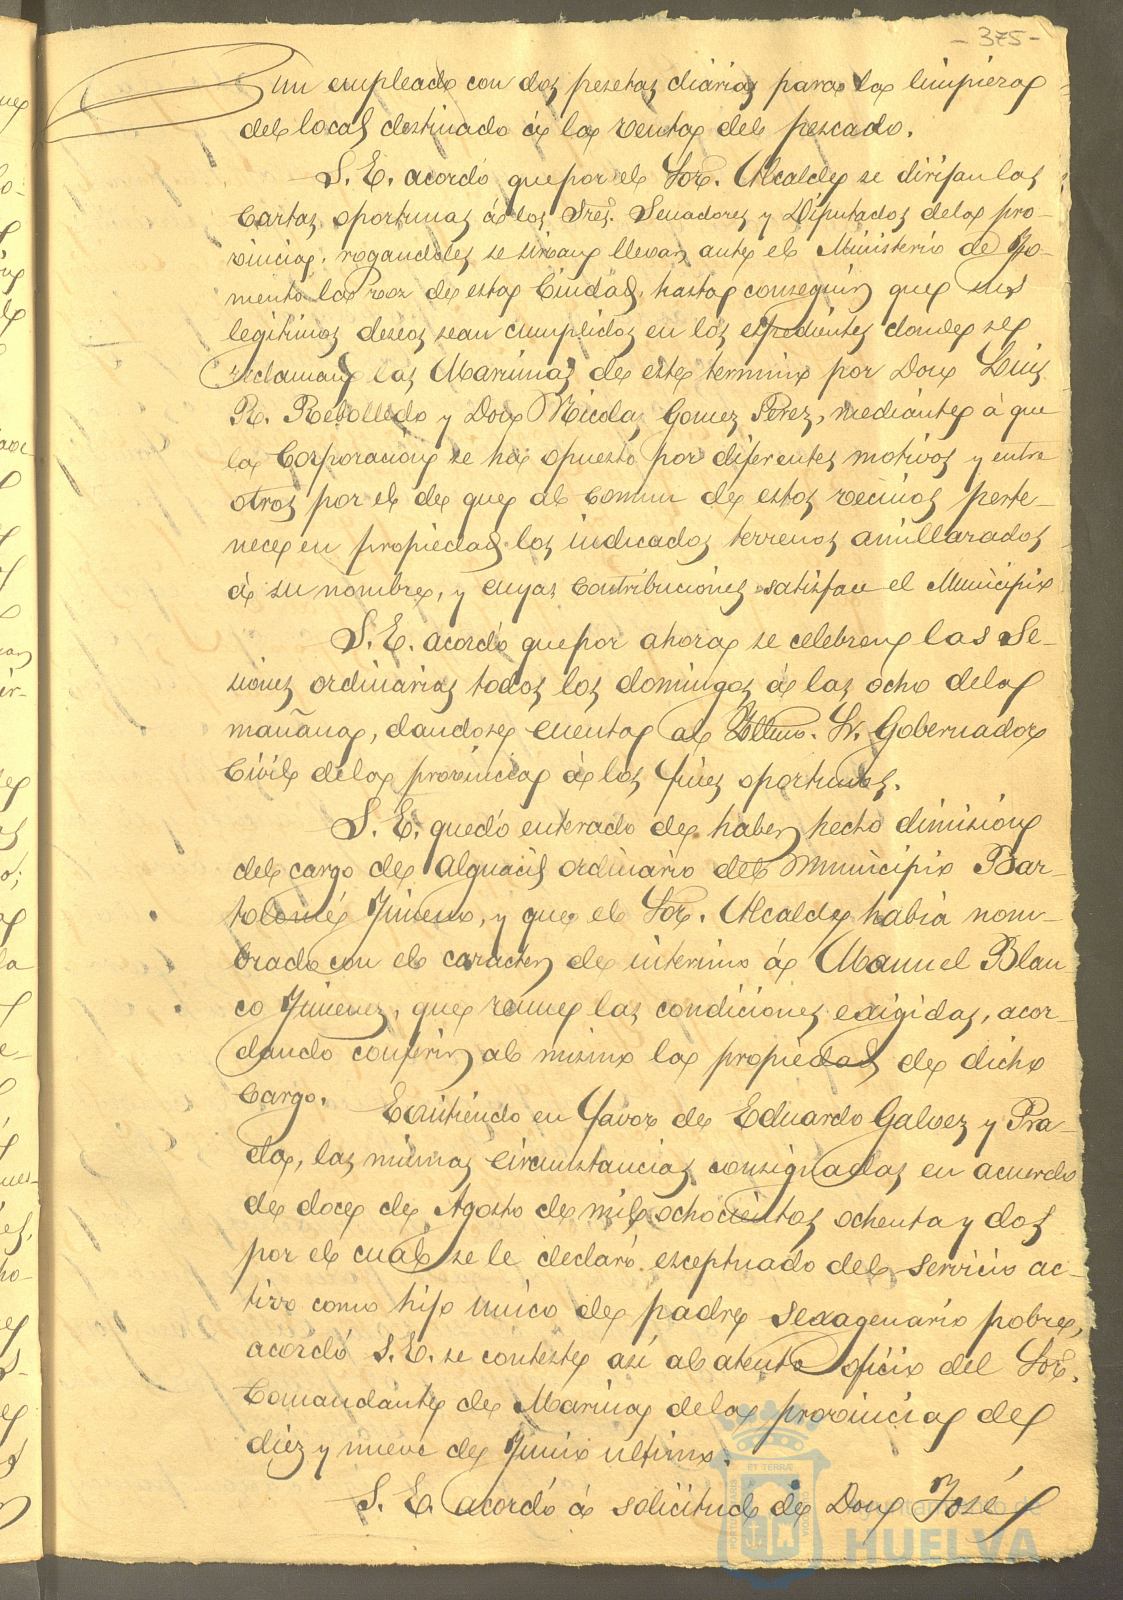 - 375 -
un empleado con dos pesetas diarias para la limpieza
del local destinado á la venta del pescado.
S. E. acordó que por el Sor. Alcalde se dirijan las
Cartas oportunas á los Sres. Senadores y Diputados de la pro-
vincia, rogandoles se sirvan llevar ante el Ministerio de Fo-
mento la voz de esta Ciudad, hasta conseguir que sus
legitimos deseos sean cumplidos en los espedientes donde se
reclaman las Marismas de este termino por Don Luis
R. Rebolledo y Don Nicolas Gomez Perez, mediante á que
la Corporación se ha opuesto por diferentes motivos y entre
otros por el de que al comun de estos vecinos perte-
nece en propiedad los indicados terrenos amillarados
á su nombre, y cuyas contribuciones satisface el Municipio
S. E. acordó que por ahora se celebren las Se-
siones ordinarias todos los domingos á las ocho de la
mañana, dandose cuenta al Iltmo. Sr. Gobernador
Civil de la provincia á los fines oportunos.
S. E. quedó enterado de haber hecho dimisión
del cargo de Alguacil ordinario del Municipio Bar-
tolomé Jimeno, y que el Sor. Alcalde habia nom-
brado con el caracter de interino á Manuel Blan-
co Jimenez, que reune las condiciones exigidas, acor-
dando conferir al mismo la propiedad de dicho
Cargo.
Existiendo en favor de Eduardo Galvez y Pra-
da, las mismas circunstancias consignadas en acuerdo
de doce de Agosto de mil ochocientos ochenta y dos
por el cual se le declaró esceptuado del servicio ac-
tivo como hijo unico de padre sexagenario pobre,
acordó S. E. se conteste asi al atento oficio del Sor.
Comandante de Marina de la provincia de
diez y nueve de Junio ultimo.
S. E. acordó á solicitud de Don José
Ayuntamiento de
HUELVA